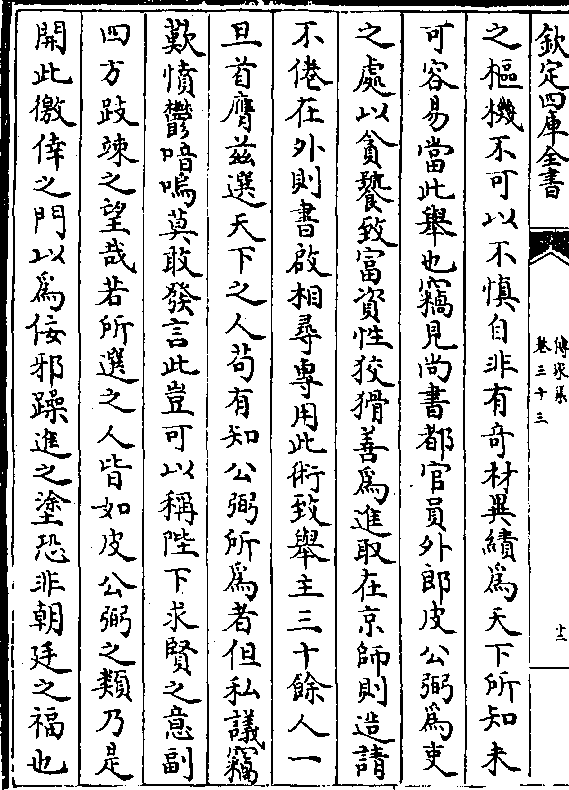 欽定四庫全書
傳家集
卷三十三
十二
之樞機不可以不慎自非有奇材異績爲天下所知未
可容易當此舉也竊見尚書都官員外郎皮公弼爲吏
之處以貪饕致富資性狡猾善爲進取在京師則造請
不倦在外則書啟相尋專用此術致舉主三十餘人一
旦首膺兹選天下之人茍有知公弼所爲者但私議竊
歎憤鬱喑嗚莫敢發言此豈可以稱陛下求賢之意副
四方跂竦之望哉若所選之人皆如皮公弼之類乃是
開此徼倖之門以爲佞邪躁進之塗恐非朝廷之福也